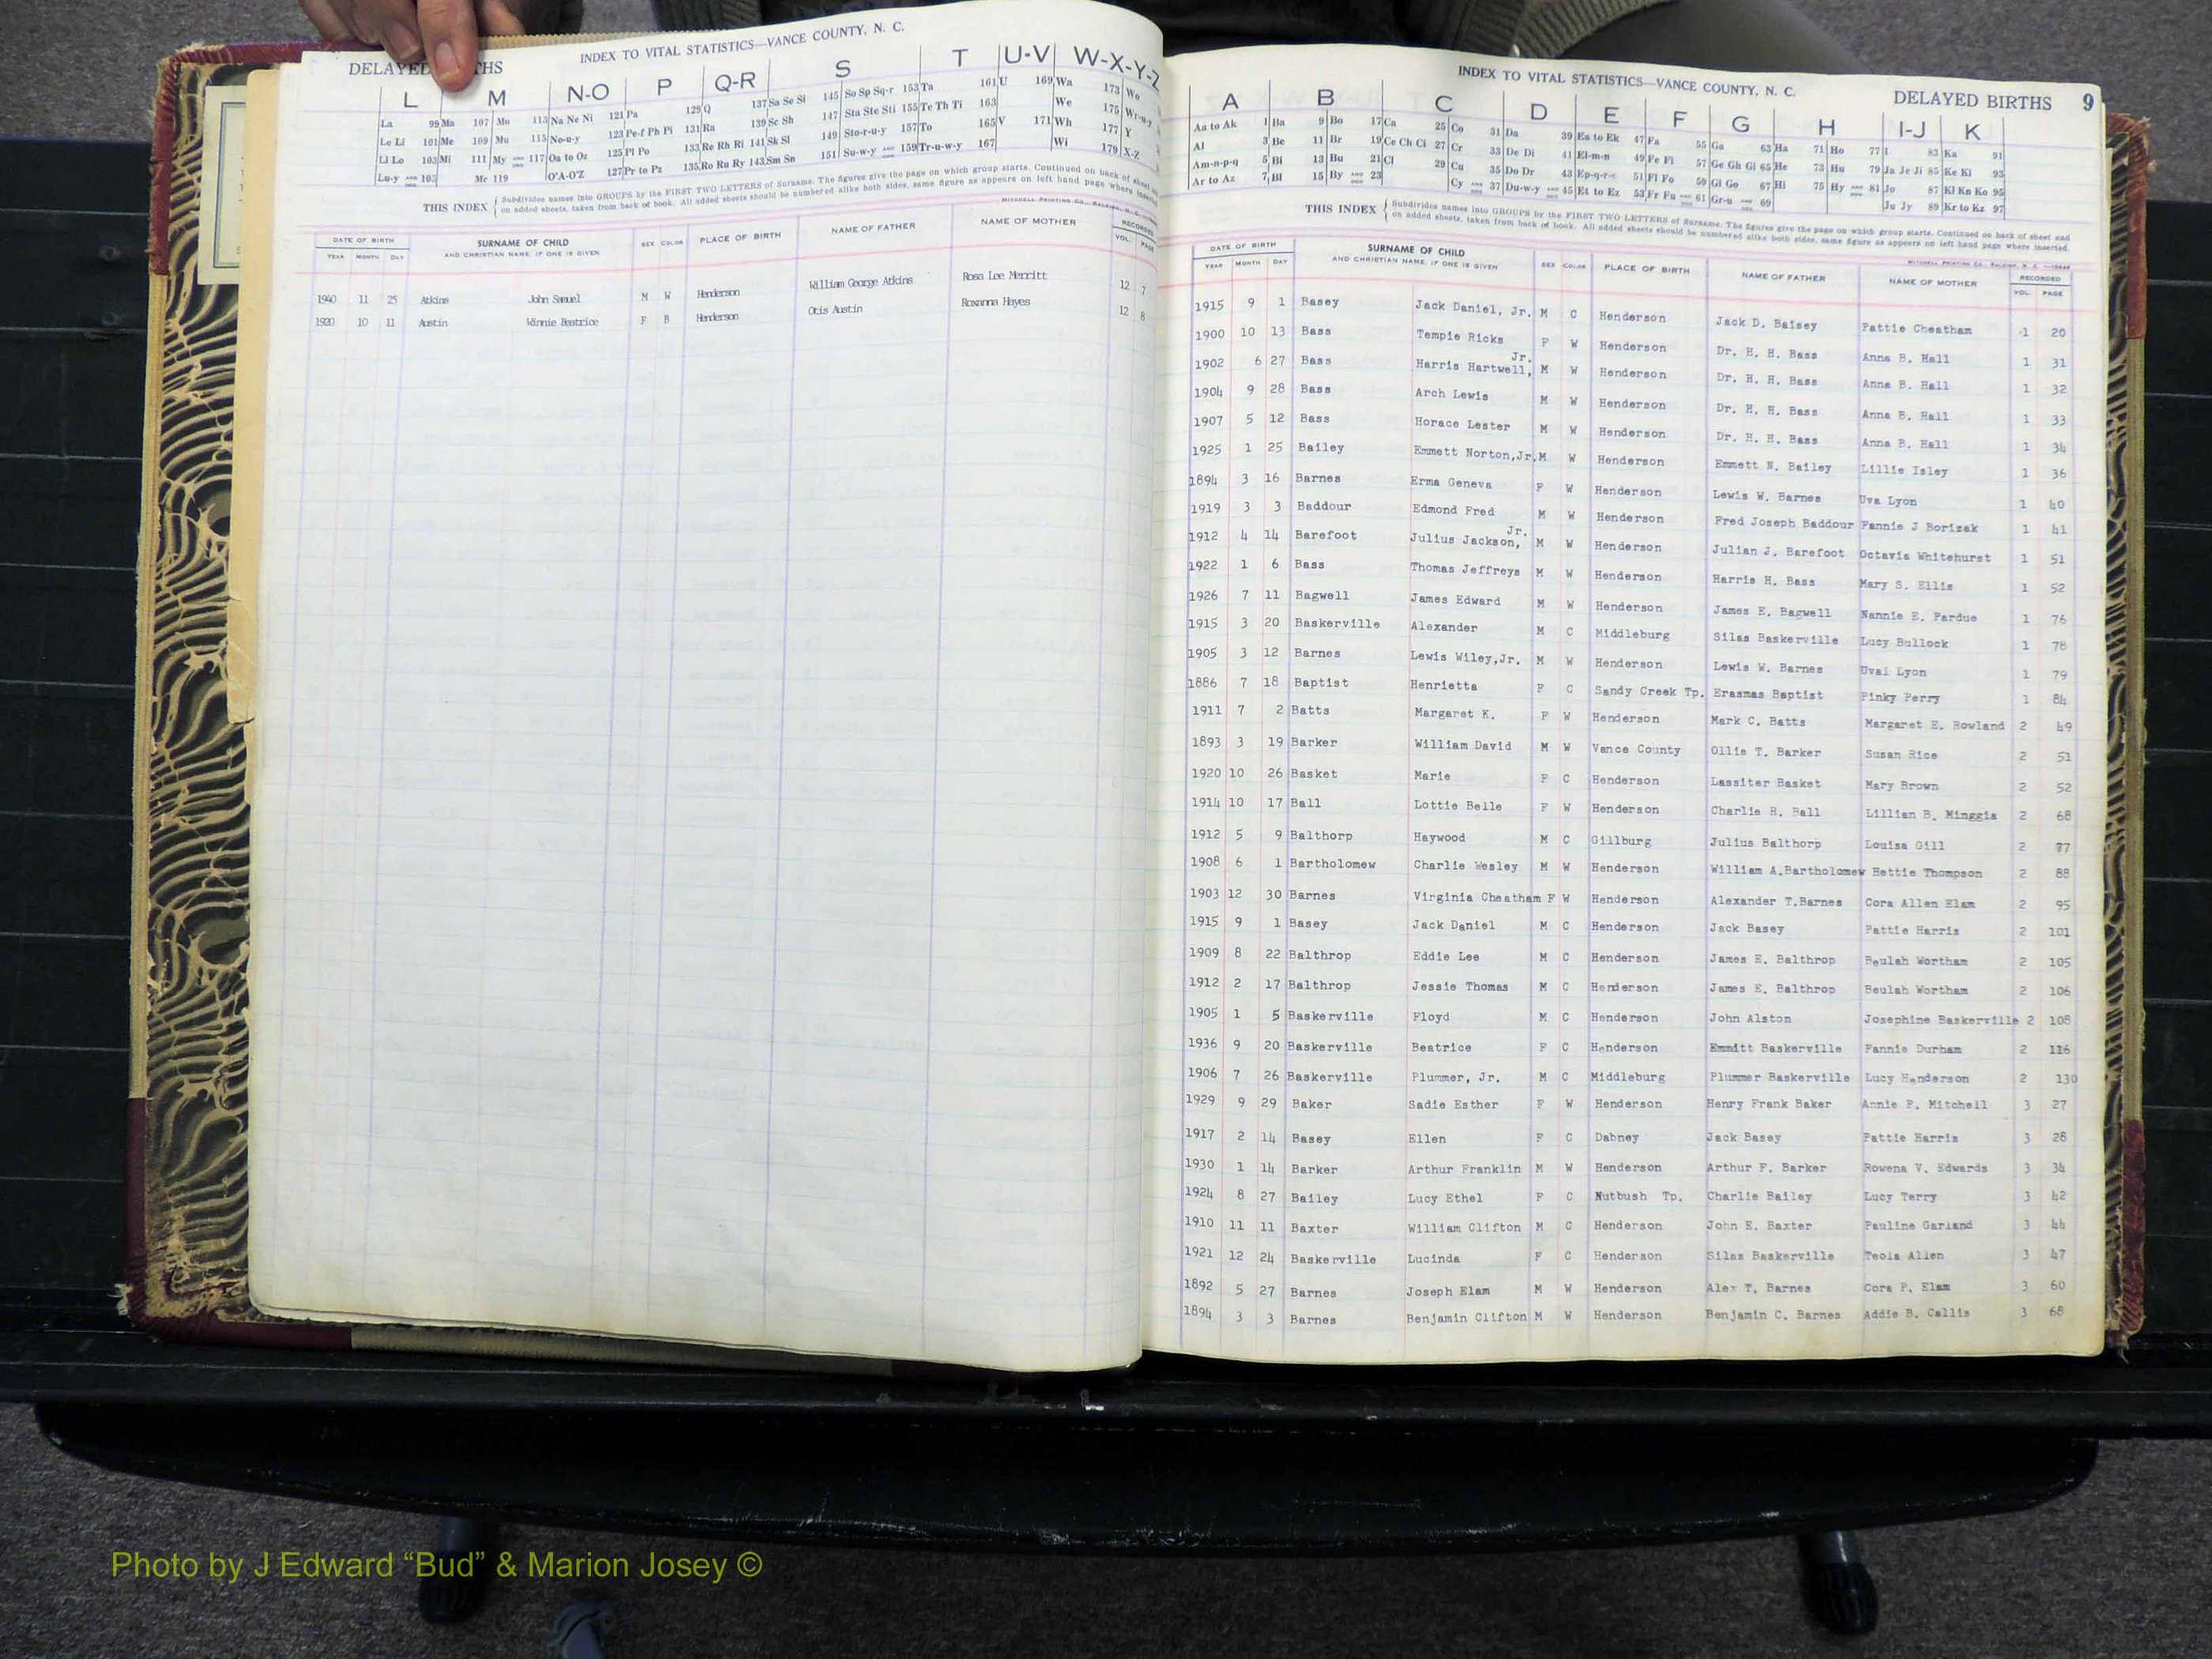 INDEX TO VITAL STATISTICS—VANCE COUNTY, N. C.
DELAYED THS
L M N-O P Q-R S T U-V W-X-Y-Z
La 99 Ma 107 Mo 113 Na Ne Ni 121 Pa 129 Q 137 Sa Se Si 145 So Sp Sq-r 153 Ta 161 U 169 Wa 173 Wo
Le Li 101 Me 109 Mu 115 No-u-y 123 Pe-f Ph Pi 131 Ra 139 Sc Sh 147 Sta Ste Sti 155 Te Th Ti 163 We 175 Wr-u-y
Ll Lo 103 Mi 111 My AND 117 Oa to Oz 125 Pl Po 133 Re Rh Ri 141 Sk Sl 149 Sto-r-u-y 157 To 165 V 171 Wh 177 Y
Lu-y AND 105 Mc 119 O'A-O'Z 127 Pr to Pz 135 Ro Ru Ry 143 Sm Sn 151 Su-w-y AND 159 Tr-u-w-y 167 Wi 179 X-Z
THIS INDEX { Subdivides names into GROUPS by the FIRST TWO LETTERS of Surname. The figures give the page on which group starts. Continued on back of sheet
on added sheets, taken from back of book. All added sheets should be numbered alike both sides, same figure as appears on left hand page where inserted
DATE OF BIRTH SURNAME OF CHILD SEX COLOR PLACE OF BIRTH NAME OF FATHER NAME OF MOTHER RECORDED
YEAR MONTH DAY AND CHRISTIAN NAME, IF ONE IS GIVEN VOL. PAGE
1940 11 25 Atkins John Samuel M W Henderson William George Atkins Rosa Lee Merritt 12 7
1920 10 11 Austin Winnie Beatrice F B Henderson Otis Austin Roxanna Hayes 12 8
INDEX TO VITAL STATISTICS—VANCE COUNTY, N. C.
DELAYED BIRTHS 9
A B C D E F G H I-J K
Aa to Ak 1 Ba 9 Bo 17 Ca 25 Co 31 Da 39 Ea to Ek 47 Fa 55 Ga 63 Ha 71 Ho 77 I 83 Ka 91
Al 3 Be 11 Br 19 Ce Ch Ci 27 Cr 33 De Di 41 El-m-n 49 Fe Fi 57 Ge Gh Gi 65 He 73 Hu 79 Ja Je Ji 85 Ke Ki 93
Am-n-p-q 5 Bi 13 Bu 21 Cl 29 Cu 35 Do Dr 43 Ep-q-r-s 51 Fl Fo 59 Gl Go 67 Hi 75 Hy AND 81 Jo 87 Kl Kn Ko 95
Ar to Az 7 Bl 15 By AND 23 Cy AND 37 Du-w-y AND 45 Et to Ez 53 Fr Fu AND 61 Gr-u AND 69 Ju Jy 89 Kr to Kz 97
THIS INDEX { Subdivides names into GROUPS by the FIRST TWO LETTERS of Surname. The figures give the page on which group starts. Continued on back of sheet and
on added sheets, taken from back of book. All added sheets should be numbered alike both sides, same figure as appears on left hand page where inserted.
DATE OF BIRTH SURNAME OF CHILD SEX COLOR PLACE OF BIRTH NAME OF FATHER NAME OF MOTHER RECORDED
YEAR MONTH DAY AND CHRISTIAN NAME, IF ONE IS GIVEN VOL. PAGE
1915 9 1 Basey Jack Daniel, Jr. M C Henderson Jack D. Baisey Pattie Cheatham 1 20
1900 10 13 Bass Tempie Ricks F W Henderson Dr. H. H. Bass Anna B. Hall 1 31
1902 6 27 Bass Harris Hartwell, Jr. M W Henderson Dr. H. H. Bass Anna B. Hall 1 32
1904 9 28 Bass Arch Lewis M W Henderson Dr. H. H. Bass Anna B. Hall 1 33
1907 5 12 Bass Horace Lester M W Henderson Dr. H. H. Bass Anna B. Hall 1 34
1925 1 25 Bailey Emmett Norton,Jr. M W Henderson Emmett N. Bailey Lillie Isley 1 36
1894 3 16 Barnes Erma Geneva F W Henderson Lewis W. Barnes Uva Lyon 1 40
1919 3 3 Baddour Edmond Fred M W Henderson Fred Joseph Baddour Fannie J Borizak 1 41
1912 4 14 Barefoot Julius Jackson, Jr. M W Henderson Julian J. Barefoot Octavia Whitehurst 1 51
1922 1 6 Bass Thomas Jeffreys M W Henderson Harris H. Bass Mary S. Ellis 1 52
1926 7 11 Bagwell James Edward M W Henderson James E. Bagwell Nannie E. Pardue 1 76
1915 3 20 Baskerville Alexander M C Middleburg Silas Baskerville Lucy Bullock 1 78
1905 3 12 Barnes Lewis Wiley,Jr. M W Henderson Lewis W. Barnes Uval Lyon 1 79
1886 7 18 Baptist Henrietta F C Sandy Creek Tp. Erasmas Baptist Pinky Perry 1 84
1911 7 2 Batts Margaret K. F W Henderson Mark C. Batts Margaret E. Rowland 2 49
1893 3 19 Barker William David M W Vance County Ollie T. Barker Susan Rice 2 51
1920 10 26 Basket Marie F C Henderson Lassiter Basket Mary Brown 2 52
1914 10 17 Ball Lottie Belle F W Henderson Charlie R. Ball Lillian B. Minggis 2 68
1912 5 9 Balthorp Haywood M C Gillburg Julius Balthorp Louisa Gill 2 77
1908 6 1 Bartholomew Charlie Wesley M W Henderson William A.Bartholomew Hettie Thompson 2 88
1903 12 30 Barnes Virginia Cheatham F W Henderson Alexander T.Barnes Cora Allen Elam 2 95
1915 9 1 Basey Jack Daniel M C Henderson Jack Basey Pattie Harris 2 101
1909 8 22 Balthrop Eddie Lee M C Henderson James E. Balthrop Beulah Wortham 2 105
1912 2 17 Balthrop Jessie Thomas M C Henderson James E. Balthrop Beulah Wortham 2 106
1905 1 5 Baskerville Floyd M C Henderson John Alston Josephine Baskerville 2 108
1936 9 20 Baskerville Beatrice F C Henderson Emmitt Baskerville Fannie Durham 2 116
1906 7 26 Baskerville Plummer, Jr. M C Middleburg Plummer Baskerville Lucy Henderson 2 130
1929 9 29 Baker Sadie Esther F W Henderson Henry Frank Baker Annie P. Mitchell 3 27
1917 2 14 Basey Ellen F C Dabney Jack Basey Pattie Harris 3 28
1930 1 14 Barker Arthur Franklin M W Henderson Arthur F. Barker Rowena V. Edwards 3 34
1924 8 27 Bailey Lucy Ethel F C Nutbush Tp. Charlie Bailey Lucy Terry 3 42
1910 11 11 Baxter William Clifton M C Henderson John E. Baxter Pauline Garland 3 44
1921 12 24 Baskerville Lucinda F C Henderson Silas Baskerville Teola Allen 3 47
1892 5 27 Barnes Joseph Elam M W Henderson Alex T. Barnes Cora P. Elam 3 60
1894 3 3 Barnes Benjamin Clifton M W Henderson Benjamin C. Barnes Addie B. Callis 3 68
Photo by J Edward “Bud” & Marion Josey ©